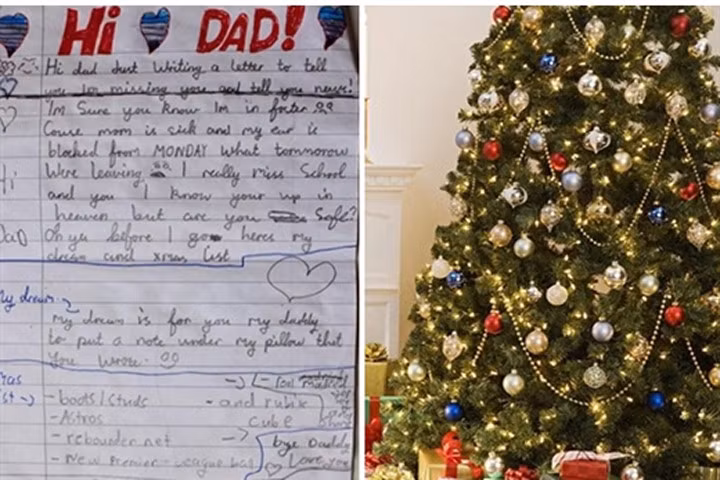 Hi DAD!
Hi dad Just writing a letter to tell
you Im missing you and tell you news!
I'm Sure you know Im in foster
Couse mom is sick and my ear is
blocked from MONDAY What tommorow
Were leaving I really miss School
and you I know your up in
heaven but are you Safe?
Oh ya before I go heres my
dream and xmas list
My dream
my dream is for you my daddy
to put a note under my pillow that
you wrote.
xmas
list
- boots/studs
- Astros
- rebounder net
- New Premier league ball
- and rubix
cube
bye Daddy
Love you
Hi
DaD